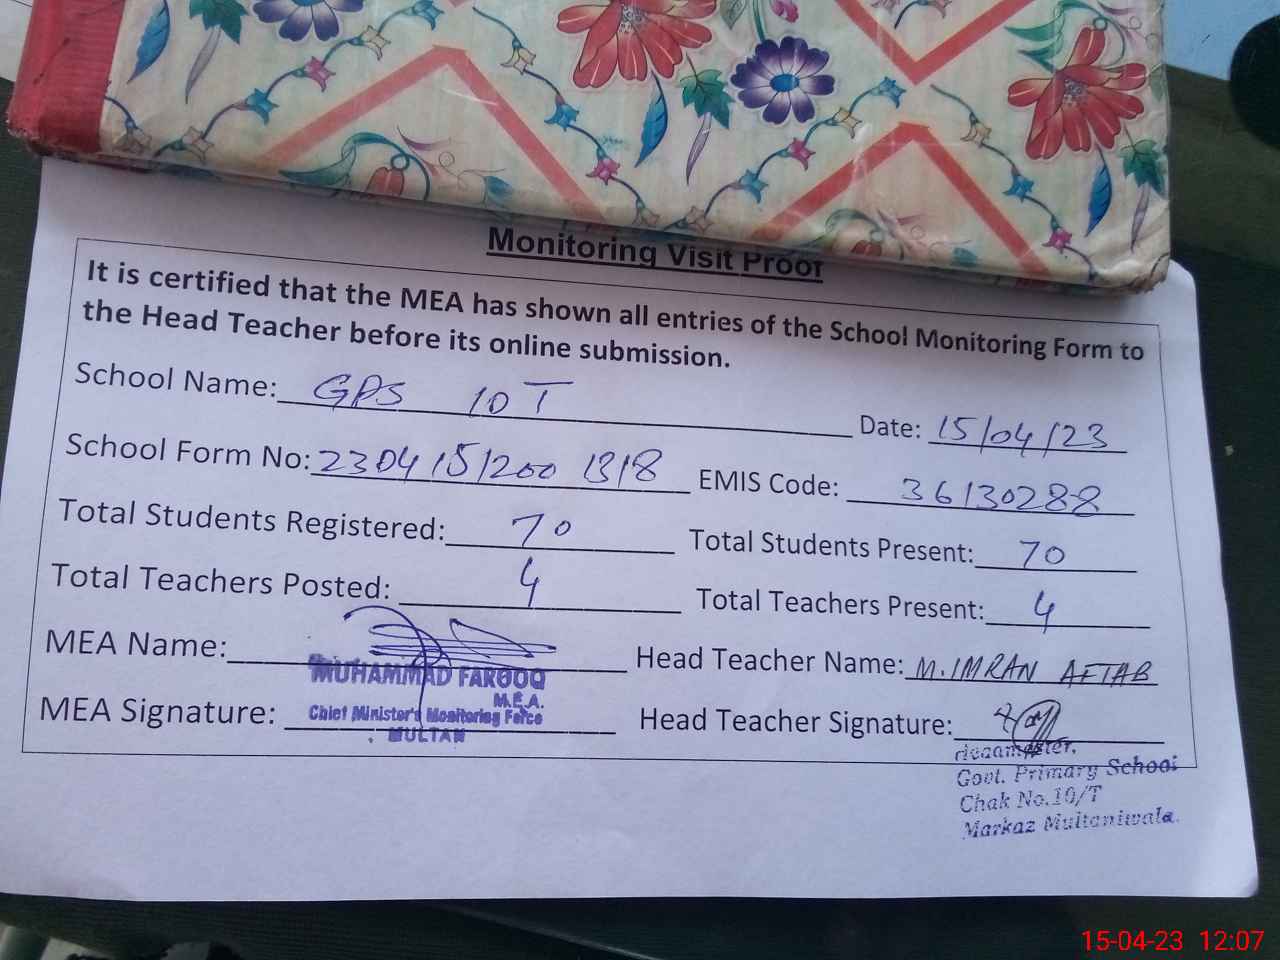 Monitoring Visit Proof
It is certified that the MEA has shown all entries of the School Monitoring Form to
the Head Teacher before its online submission.
School Name: GPS 10 T Date: 15/04/23
School Form No: 2304151200 1318 EMIS Code: 36130288
Total Students Registered: 70 Total Students Present: 70
Total Teachers Posted: 4 Total Teachers Present: 4
MEA Name: Head Teacher Name: M. IMRAN AFTAB
MUHAMMAD FAROOQ
M.E.A.
Chief Minister's Monitoring Force
MULTAN
MEA Signature: Head Teacher Signature:
Headmaster,
Govt. Primary School
Chak No.10/T
Markaz Multaniwala.
15-04-23 12:07